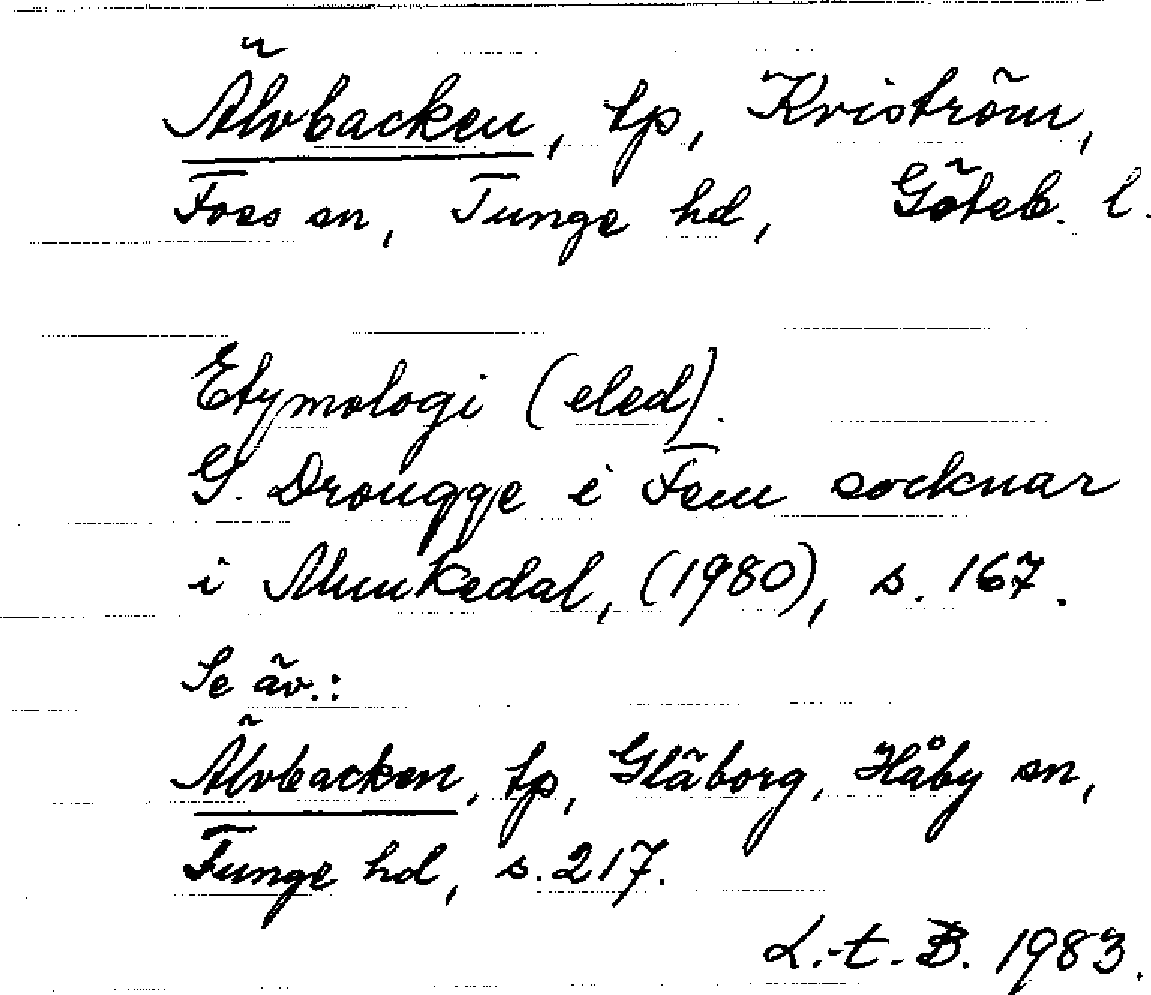 Älvbacken, tp, Kviström,
Foss sn, Tunge hd, Göteb. l.
Etymologi (eled).
G. Drougge i Fem socknar
i Munkedal, (1980), s. 167.
Se äv.:
Älvbacken, tp, Gläborg, Håby sn,
Tunge hd, s. 217.
L.-t. B. 1983.